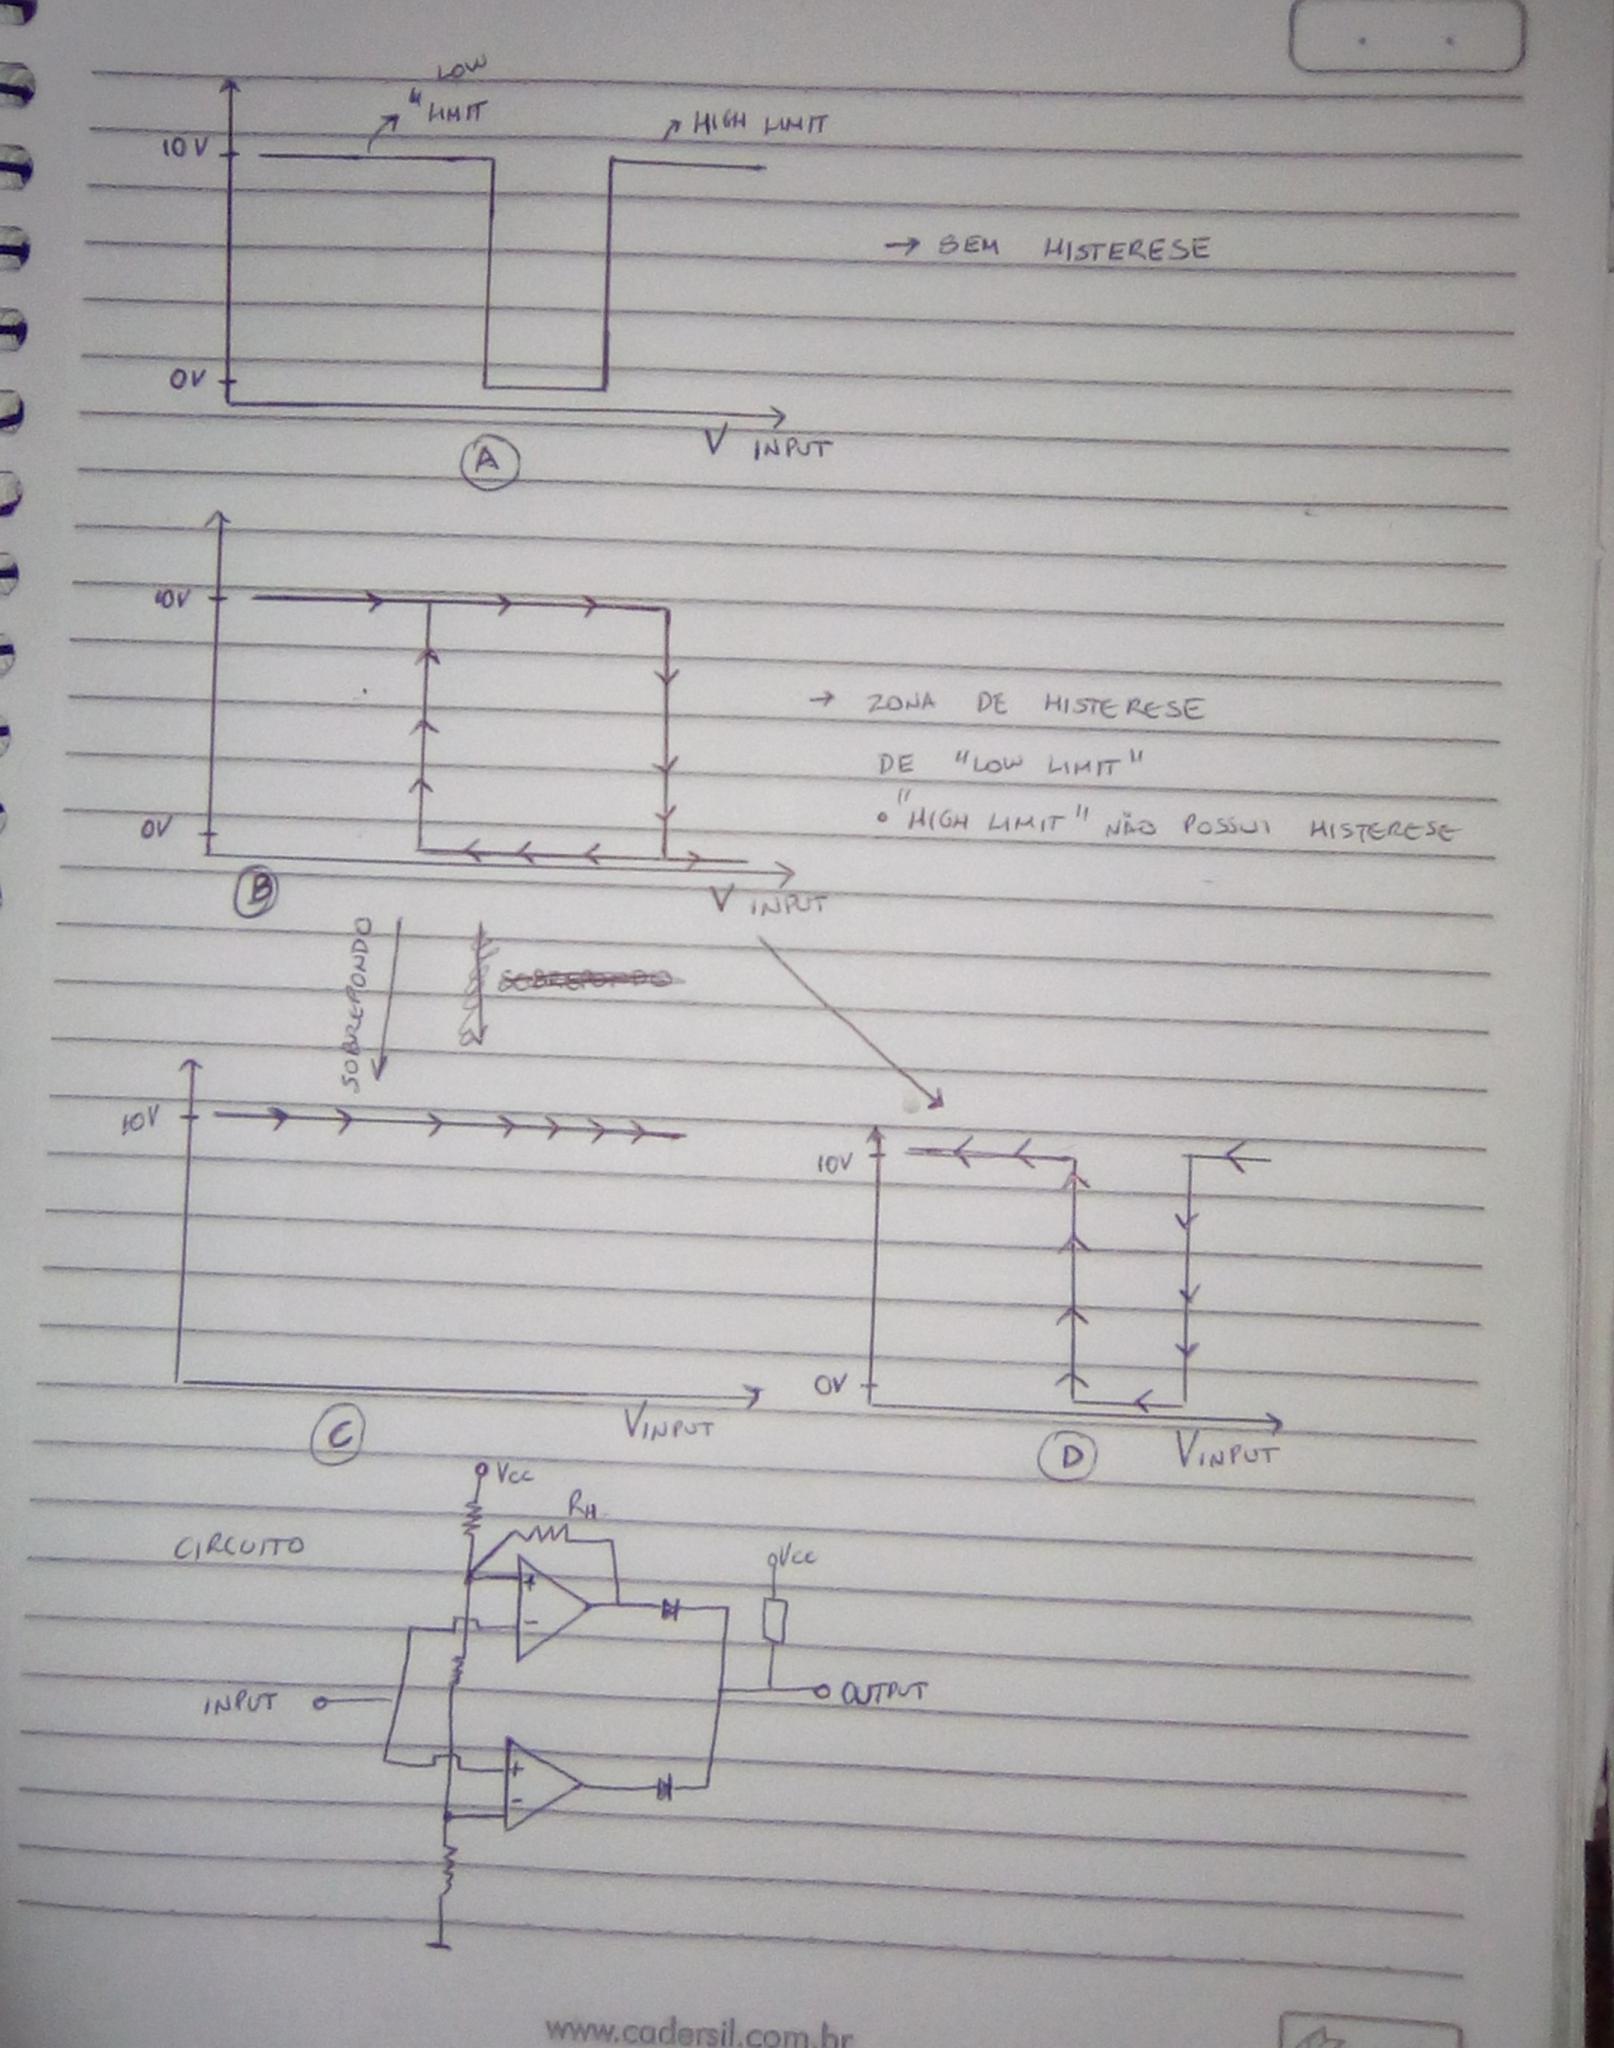 LOW
" LIMIT
HIGH LIMIT
10V
→ SEM HISTERESE
0V
V INPUT
A
10V
→ ZONA DE HISTERESE
DE "LOW LIMIT"
• "HIGH LIMIT" NÃO POSSUI HISTERESE
0V
V INPUT
B
SOBREPONDO
SOBREPONDO
10V
10V
0V
VINPUT
VINPUT
C
D
VCC
RH
CIRCUITO
VCC
+
-
INPUT
OUTPUT
+
-
www.cadersil.com.br